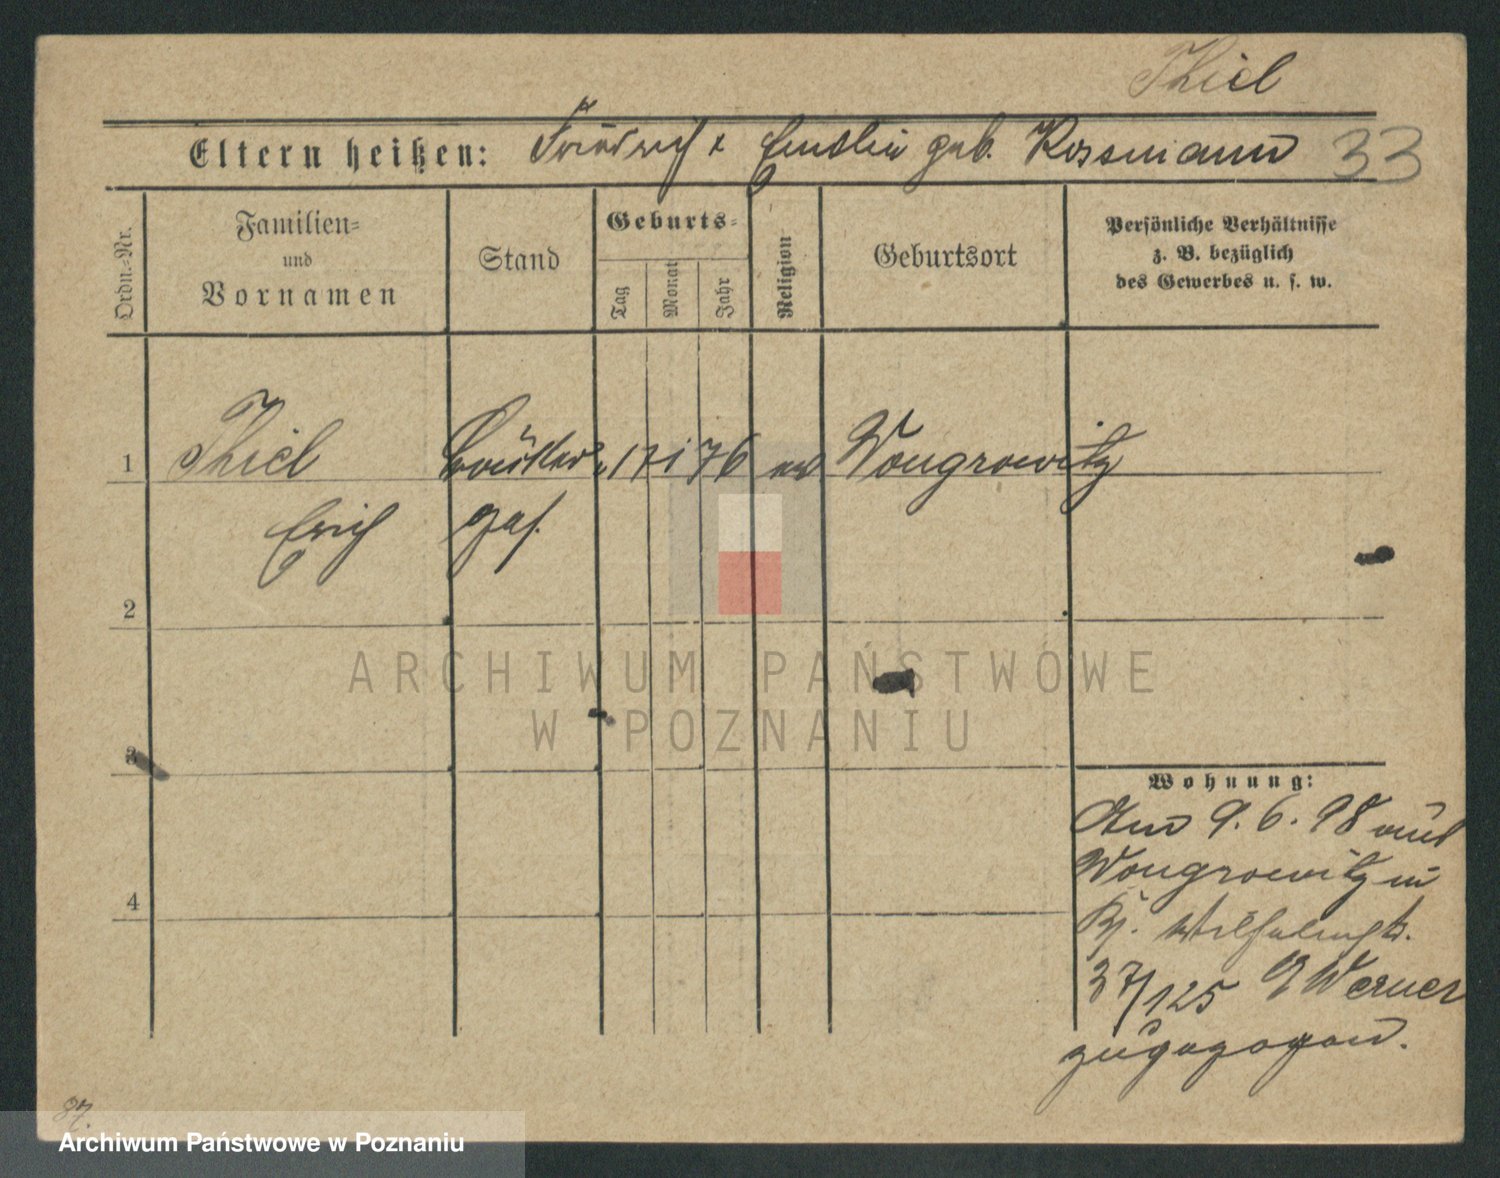 Thiel
Eltern heißen: Friedrich & Emilie geb. Rossmann 33
Ordn.-Nr.
Familien- und Vornamen
Stand
Geburts-
Tag
Monat
Jahr
Religion
Geburtsort
Persönliche Verhältnisse
z. B. bezüglich
des Gewerbes u. s. w.
1 Thiel 17 1 76 Wongrowitz
Erich geh.
2
3
4
Wohnung:
Am 9.6.98 aus
Wongrowitz in
37/125 Werner
zugezogen.
87.
ARCHIWUM PAŃSTWOWE
W POZNANIU
Archiwum Państwowe w Poznaniu